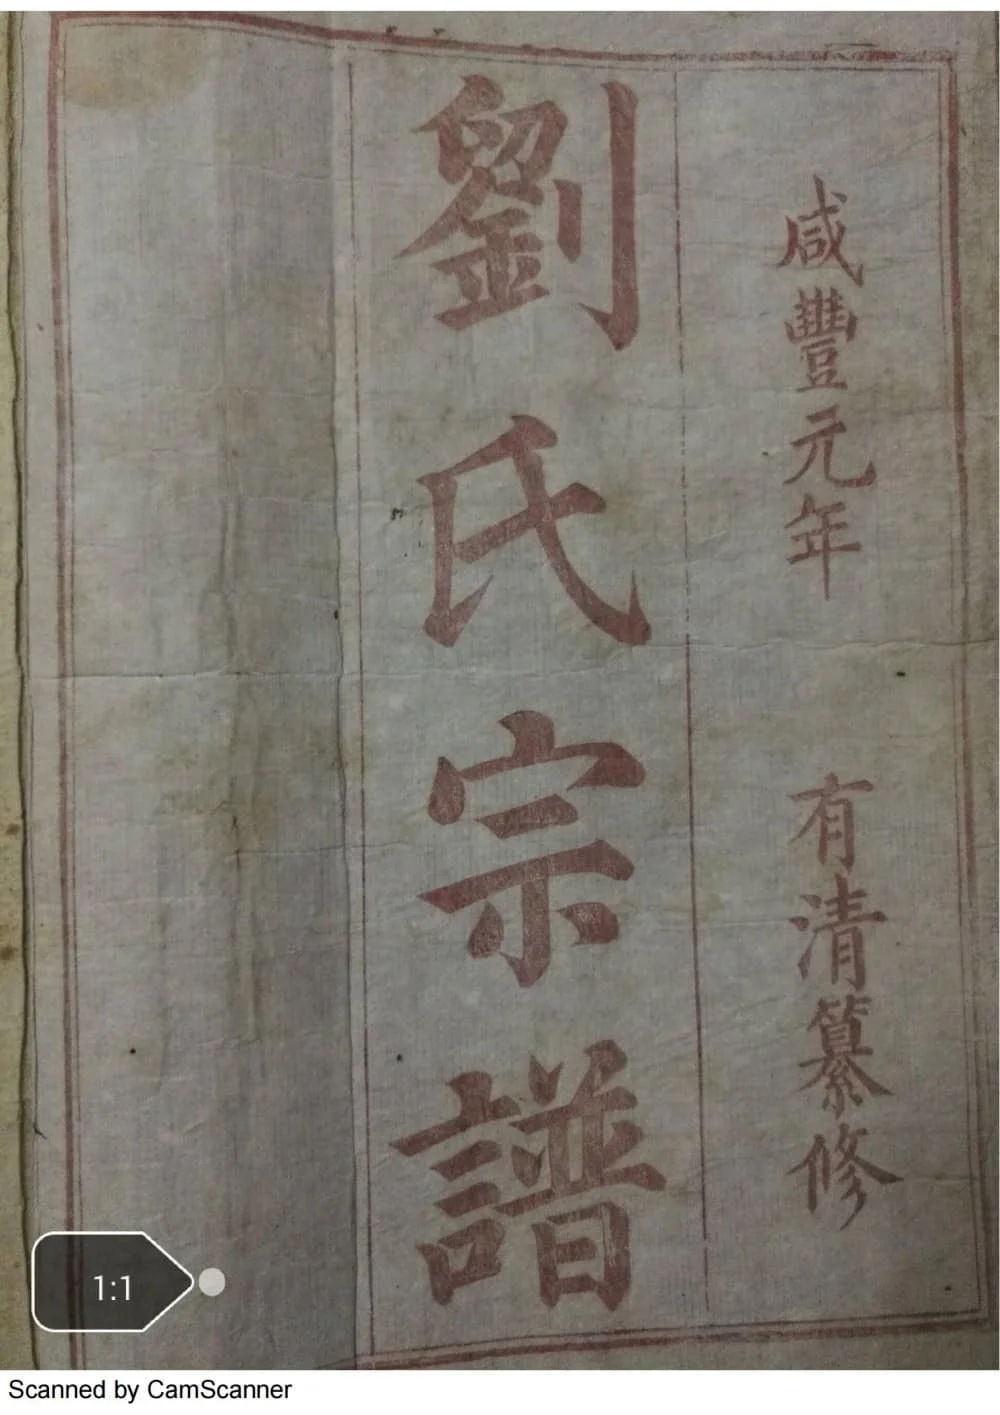 咸豐元年 有清纂修
劉氏宗譜
1:1
Scanned by CamScanner